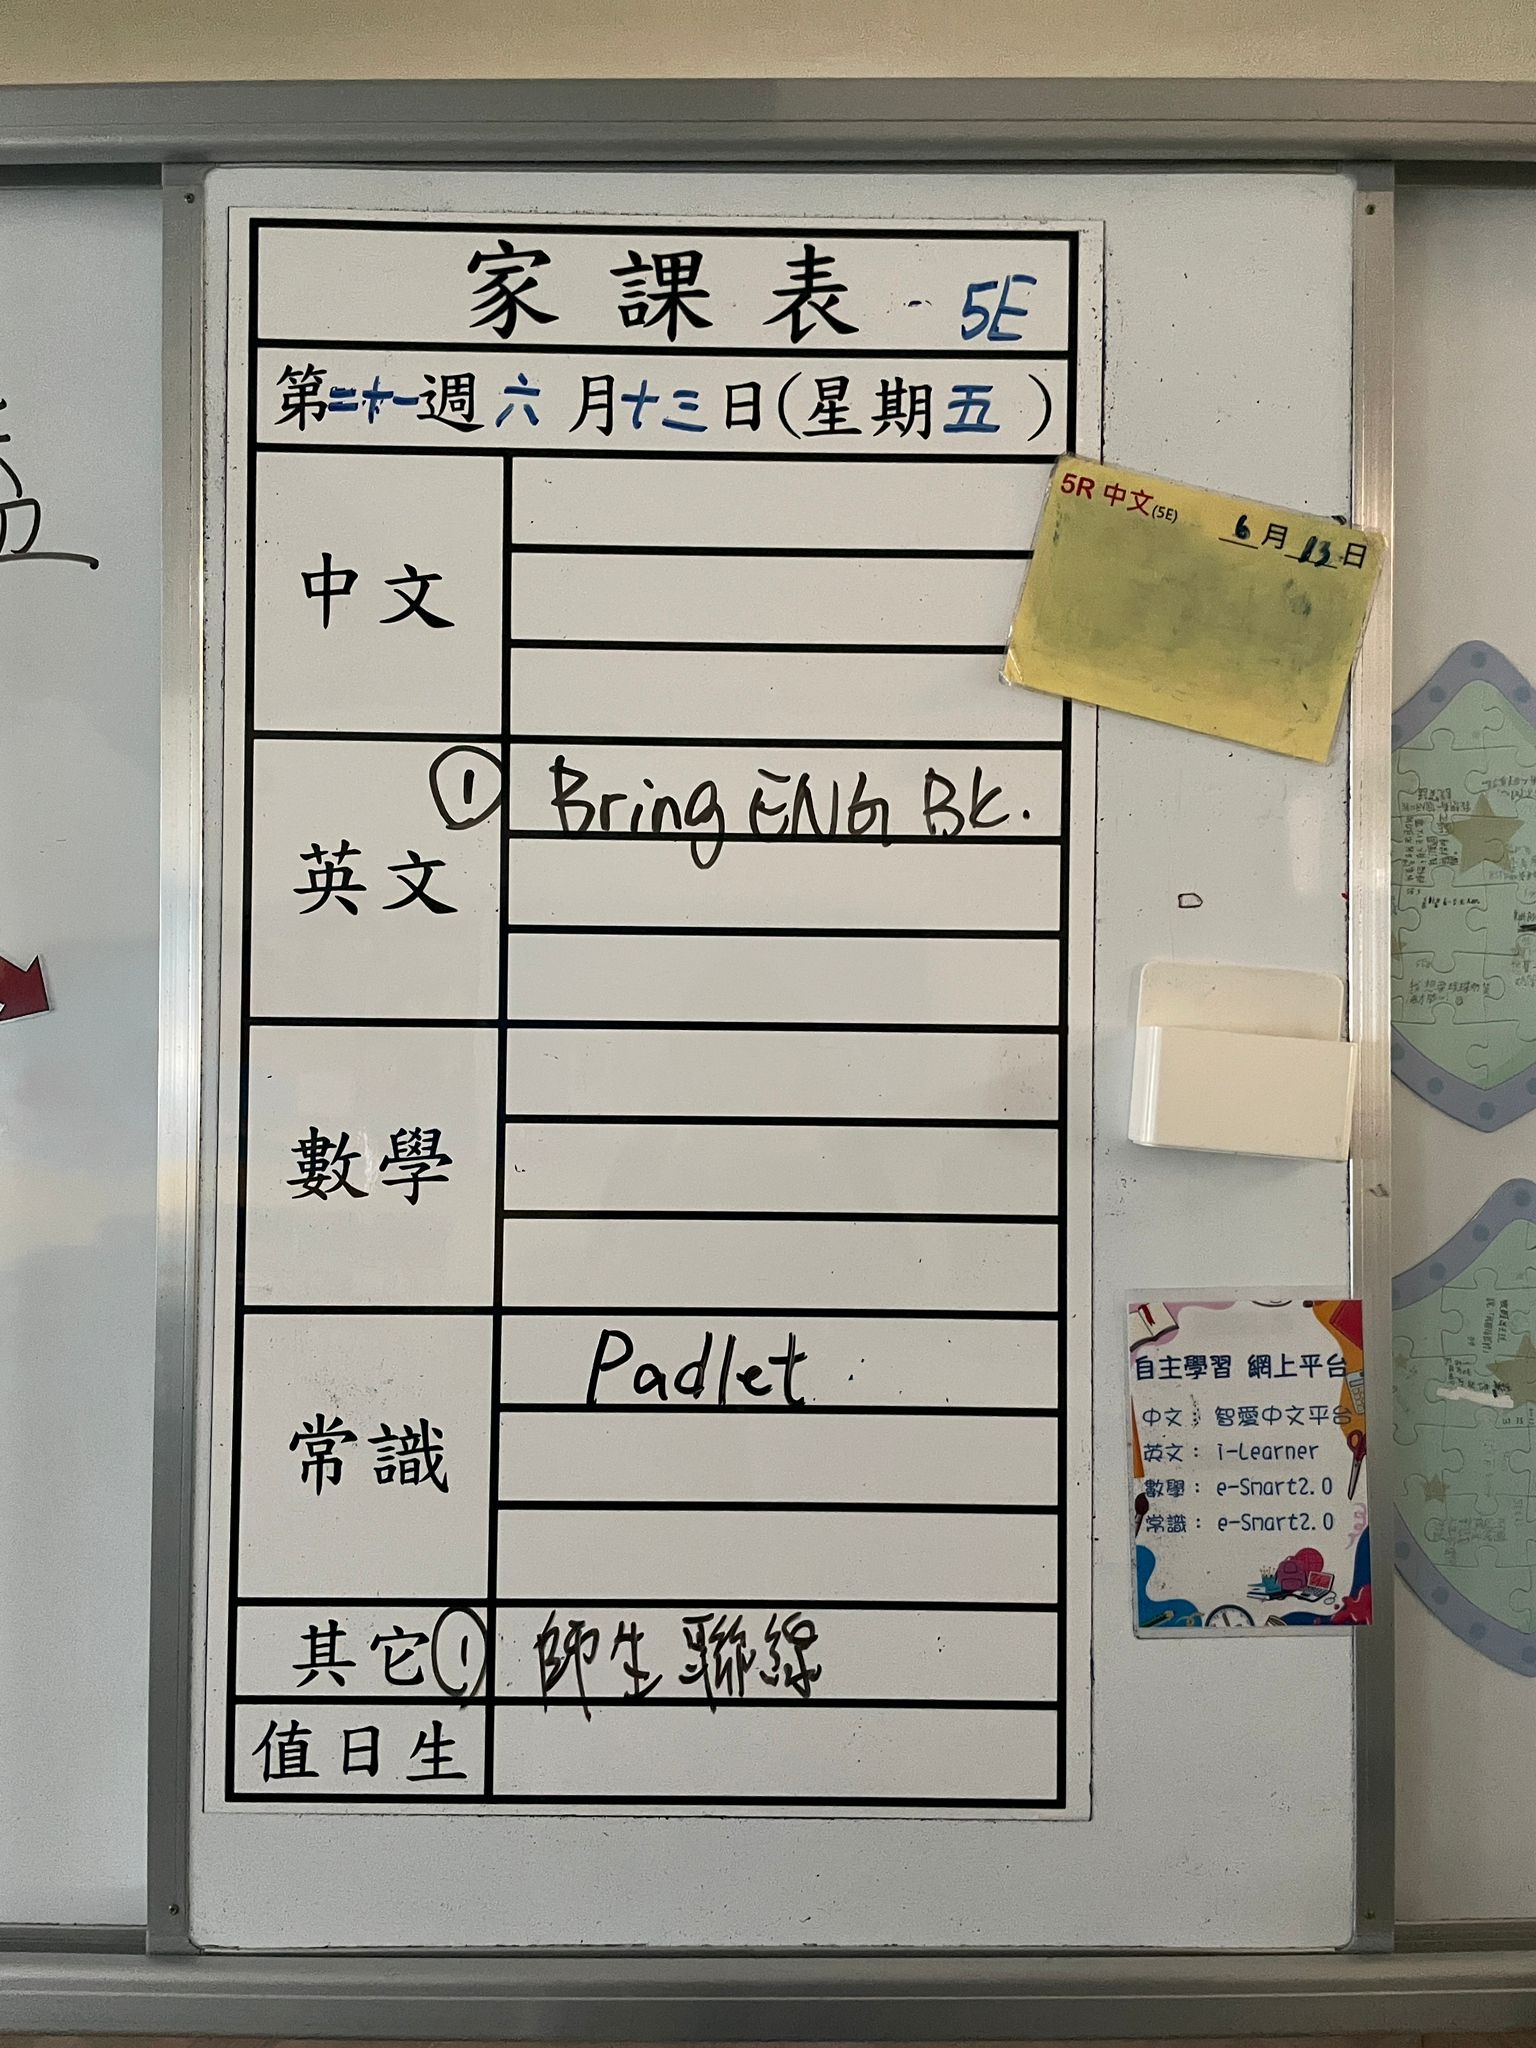 家課表 5E
第二十一週六月十三日(星期五)
中文
5R 中文(5E) 6月13日
英文
① Bring ENG Bk.
數學
常識
Padlet
其它① 師生聯線
值日生
自主學習 網上平台
中文： 智愛中文平台
英文： i-Learner
數學： e-Smart2.0
常識： e-Smart2.0